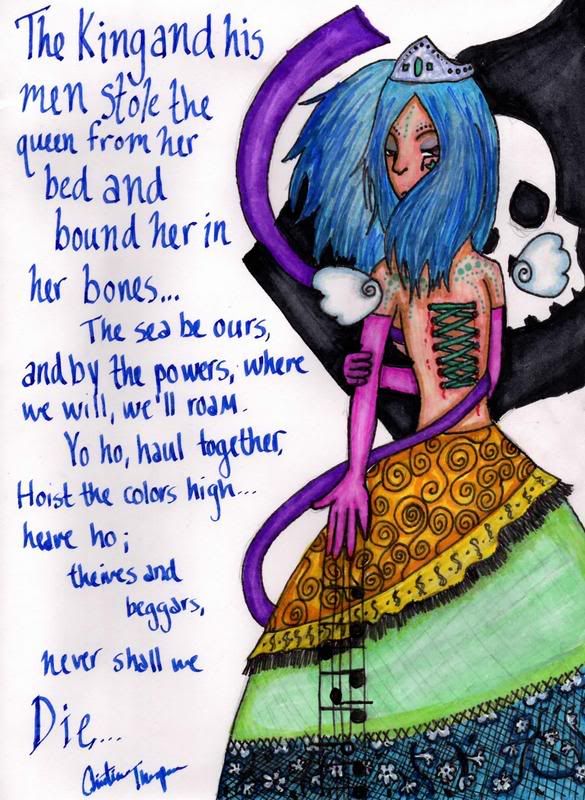 The King and his
men stole the
queen from her
bed and
bound her in
her bones...
The sea be ours,
and by the powers, where
we will, we'll roam.
Yo ho, haul together,
Hoist the colors high...
heave ho;
theives and
beggars,
never shall we
Die...